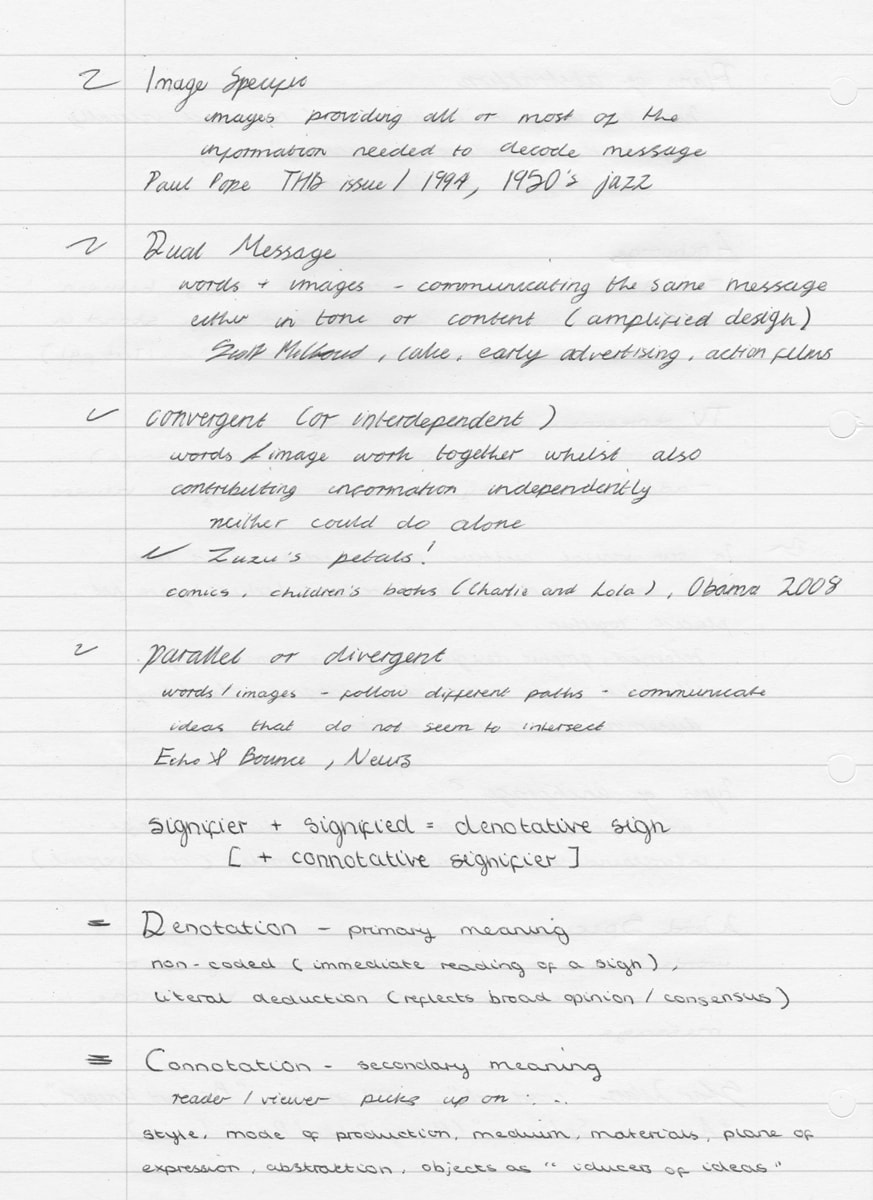 Image Specific
images providing all or most of the
information needed to decode message
Paul Pope THB issue 1 1994, 1950's jazz
Dual Message
words + images - communicating the same message
either in tone or content (amplified design)
, cake, early advertising, action films
convergent (or interdependent)
words / image work together whilst also
contributing information independently
neither could do alone
Zuzu's petals!
comics, children's books (Charlie and Lola), Obama 2008
parallel or divergent
words / images - follow different paths - communicate
ideas that do not seem to intersect
Echo & Bounce, News
signifier + signified = denotative sign
[ + connotative signifier ]
= Denotation - primary meaning
non-coded (immediate reading of a sign),
literal deduction (reflects broad opinion / consensus)
= Connotation - secondary meaning
reader / viewer picks up on . . .
style, mode of production, medium, materials, plane of
expression, abstraktion, objects as " iducers of ideas"